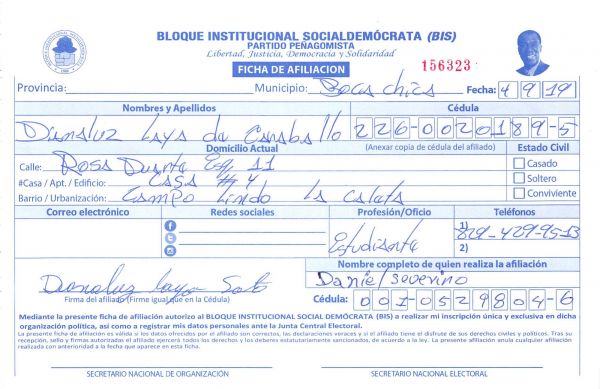 BLOQUE INSTITUCIONAL SOCIALDEMÓCRATA (BIS)
PARTIDO PEÑAGOMISTA
Libertad, Justicia, Democracia y Solidaridad
FICHA DE AFILIACION
156323
Provincia: Municipio: Boca chica Fecha: 4 9 19
Nombres y Apellidos Cédula
Dianaluz Laya de Caraballo 226-0020189-5
Domicilio Actual (Anexar copia de cédula del afiliado) Estado Civil
Calle: Rosa Duarte Esq 11 Casado
#Casa / Apt. / Edificio: CASA # 4 Soltero
Barrio / Urbanización: Campo Lindo La Caleta Conviviente
Correo electrónico Redes sociales Profesión/Oficio Teléfonos
Estudiante 1) 829-429-9513
2)
Nombre completo de quien realiza la afiliación
Dianaluz Laya Soto Daniel Severino
Firma del afiliado (Firme igual que en la Cédula) Cédula: 001-0529804-6
Mediante la presente ficha de afiliación autorizo al BLOQUE INSTITUCIONAL SOCIAL DEMÓCRATA (BIS) a realizar mi inscripción única y exclusiva en dicha
organización política, así como a registrar mis datos personales ante la Junta Central Electoral.
La presente ficha de afiliación es válida si los datos ofrecidos por el afiliado son correctos, las declaraciones veraces y si el afiliado tiene el disfrute de sus derechos civiles y políticos. Tras su
recepción, sello y firmas autorizadas el afiliado ejercerá todos los derechos y los deberes estatutariamente sancionados, de acuerdo a la ley. La presente afiliación anula cualquier afiliación
realizada con anterioridad a la fecha que aparece en esta ficha.
SECRETARIO NACIONAL DE ORGANIZACIÓN SECRETARIO NACIONAL ELECTORAL